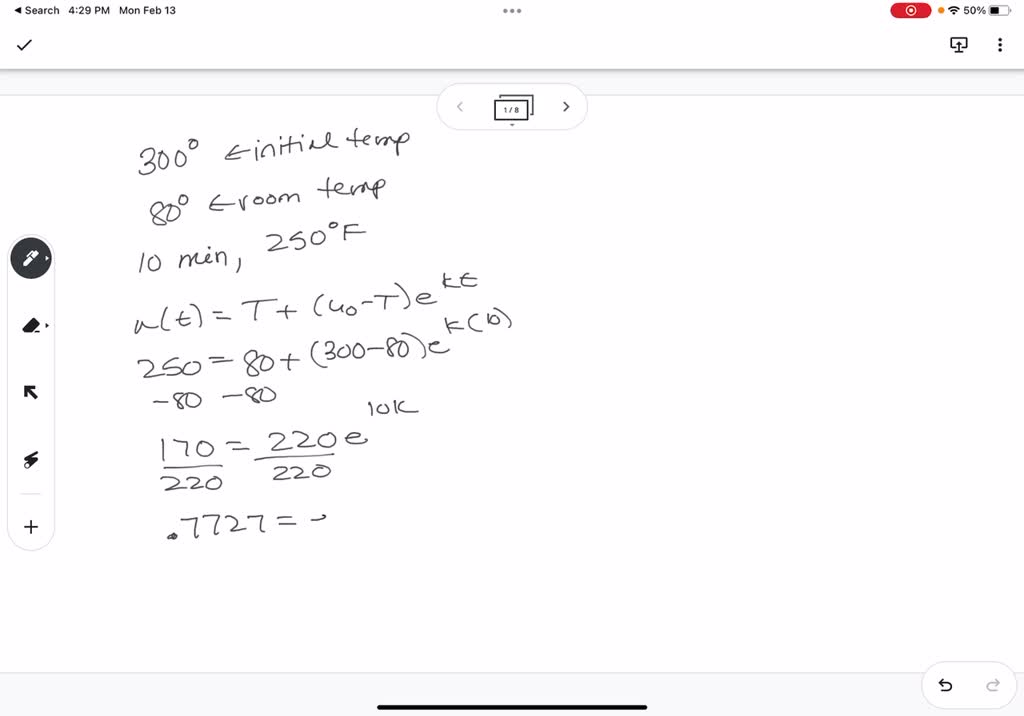 Search 4:29 PM Mon Feb 13
50%
1 / 8
300° ← initial temp
80° ← room temp
10 min, 250°F
u(t) = T + (u₀-T)e^kt
250 = 80 + (300-80)e^k(10)
-80 -80
170 = 220e^10k
220 220
.7727 =